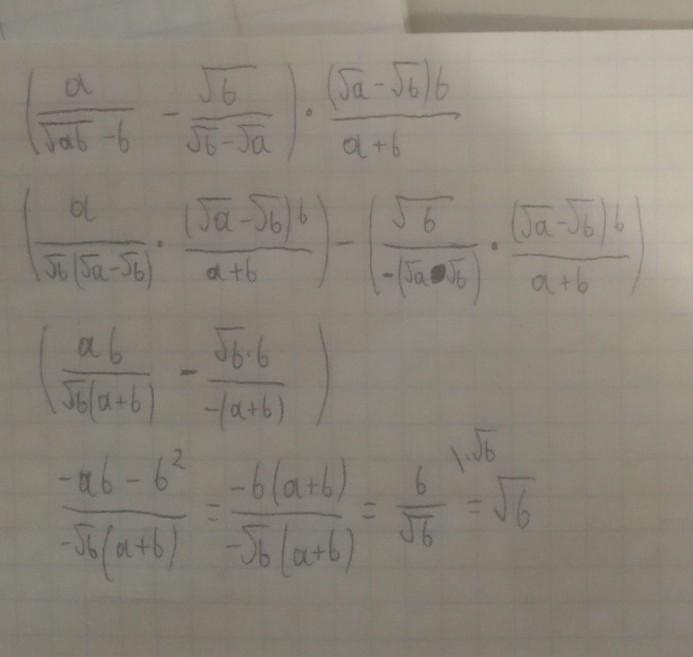 (a/(√ab - b) - √b/(√b - √a)) · (√a - √b)b/(a+b)
(a/(√b(√a - √b)) · (√a - √b)b/(a+b)) - (√b/(-(√a - √b)) · (√a - √b)b/(a+b))
(ab/(√b(a+b)) - √b·b/(-(a+b)))
(-ab - b²)/(-√b(a+b)) = -b(a+b)/(-√b(a+b)) = b/√b \·√b = √b